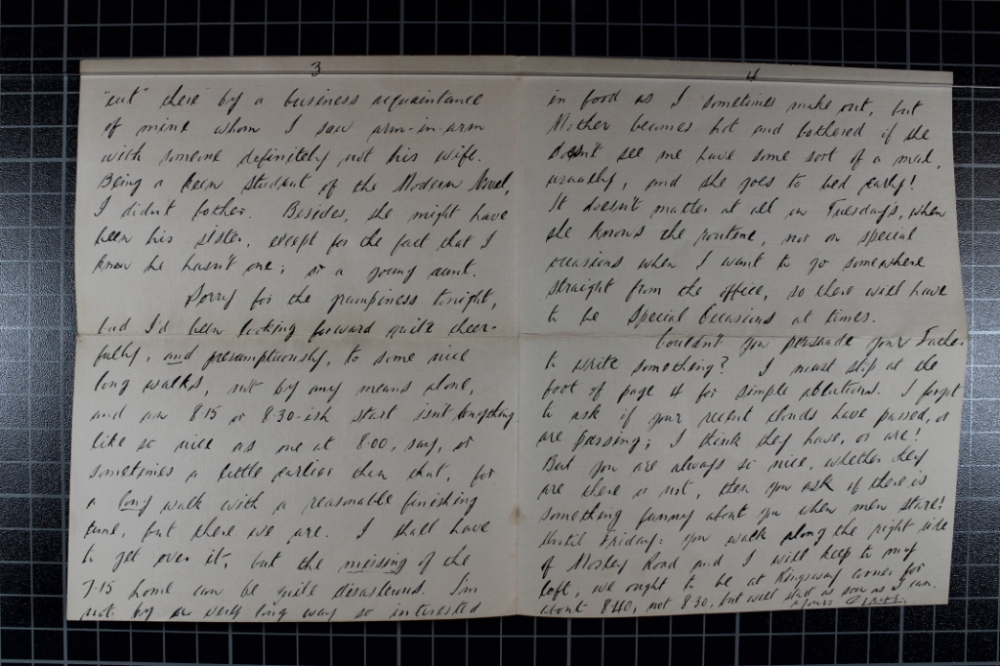 3
"cut" there by a business acquaintance
of mine whom I saw arm-in-arm
with someone definitely not his wife.
Being a keen student of the Modern Novel,
I didn't bother. Besides, she might have
been his sister, except for the fact that I
know he hasn't one; or a young aunt.
Sorry for the grumpiness tonight,
but I'd been looking forward quite cheer-
fully, and presumptuously, to some nice
long walks, not by any means alone,
and an 8.15 or 8.30-ish start isn't anything
like so nice as one at 8.00, say, or
sometimes a little earlier than that, for
a long walk with a reasonable finishing
time, but there we are. I shall have
to get over it, but the missing of the
7.15 home can be quite disastrous. I'm
not by a very long way so interested
4
in food as I sometimes make out, but
Mother becomes hot and bothered if she
doesn't see me have some sort of a meal,
usually, and she goes to bed early!
It doesn't matter at all on Tuesdays, when
she knows the routine, nor on special
occasions when I want to go somewhere
straight from the office, so there will have
to be Special Occasions at times.
Couldn't you persuade your Father
to write something? I must slip at the
foot of page 4 for simple ablutions. I forgot
to ask if your recent clouds have passed, or
are passing; I think they have, or are!
But you are always so nice, whether they
are there or not, then you ask if there is
something funny about you when men stare!
Until Friday: you walk along the right side
of Mosley Road and I will keep to my
left, we ought to be at Kingsway corner for
about 8.40, not 8.30, but will start as soon as I can.
Yours